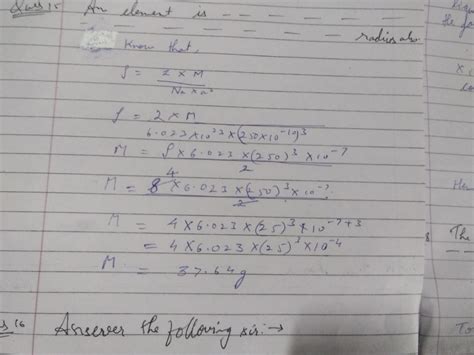 Ques 15 An element is
radius also
know that,
ρ = Z × M
Na × a³
ρ = 2 × M
6.023 × 10²³ × (250 × 10⁻¹⁰)³
M = ρ × 6.023 × (250)³ × 10⁻⁷
2
4
M = 8 × 6.023 × (250)³ × 10⁻⁷
2
M = 4 × 6.023 × (25)³ × 10⁻⁷⁺³
= 4 × 6.023 × (25)³ × 10⁻⁴
M = 37.64g
16 Answer the following sir:→
The
To